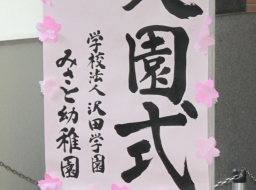 園式
学校法人 沢田学園
みさと幼稚園